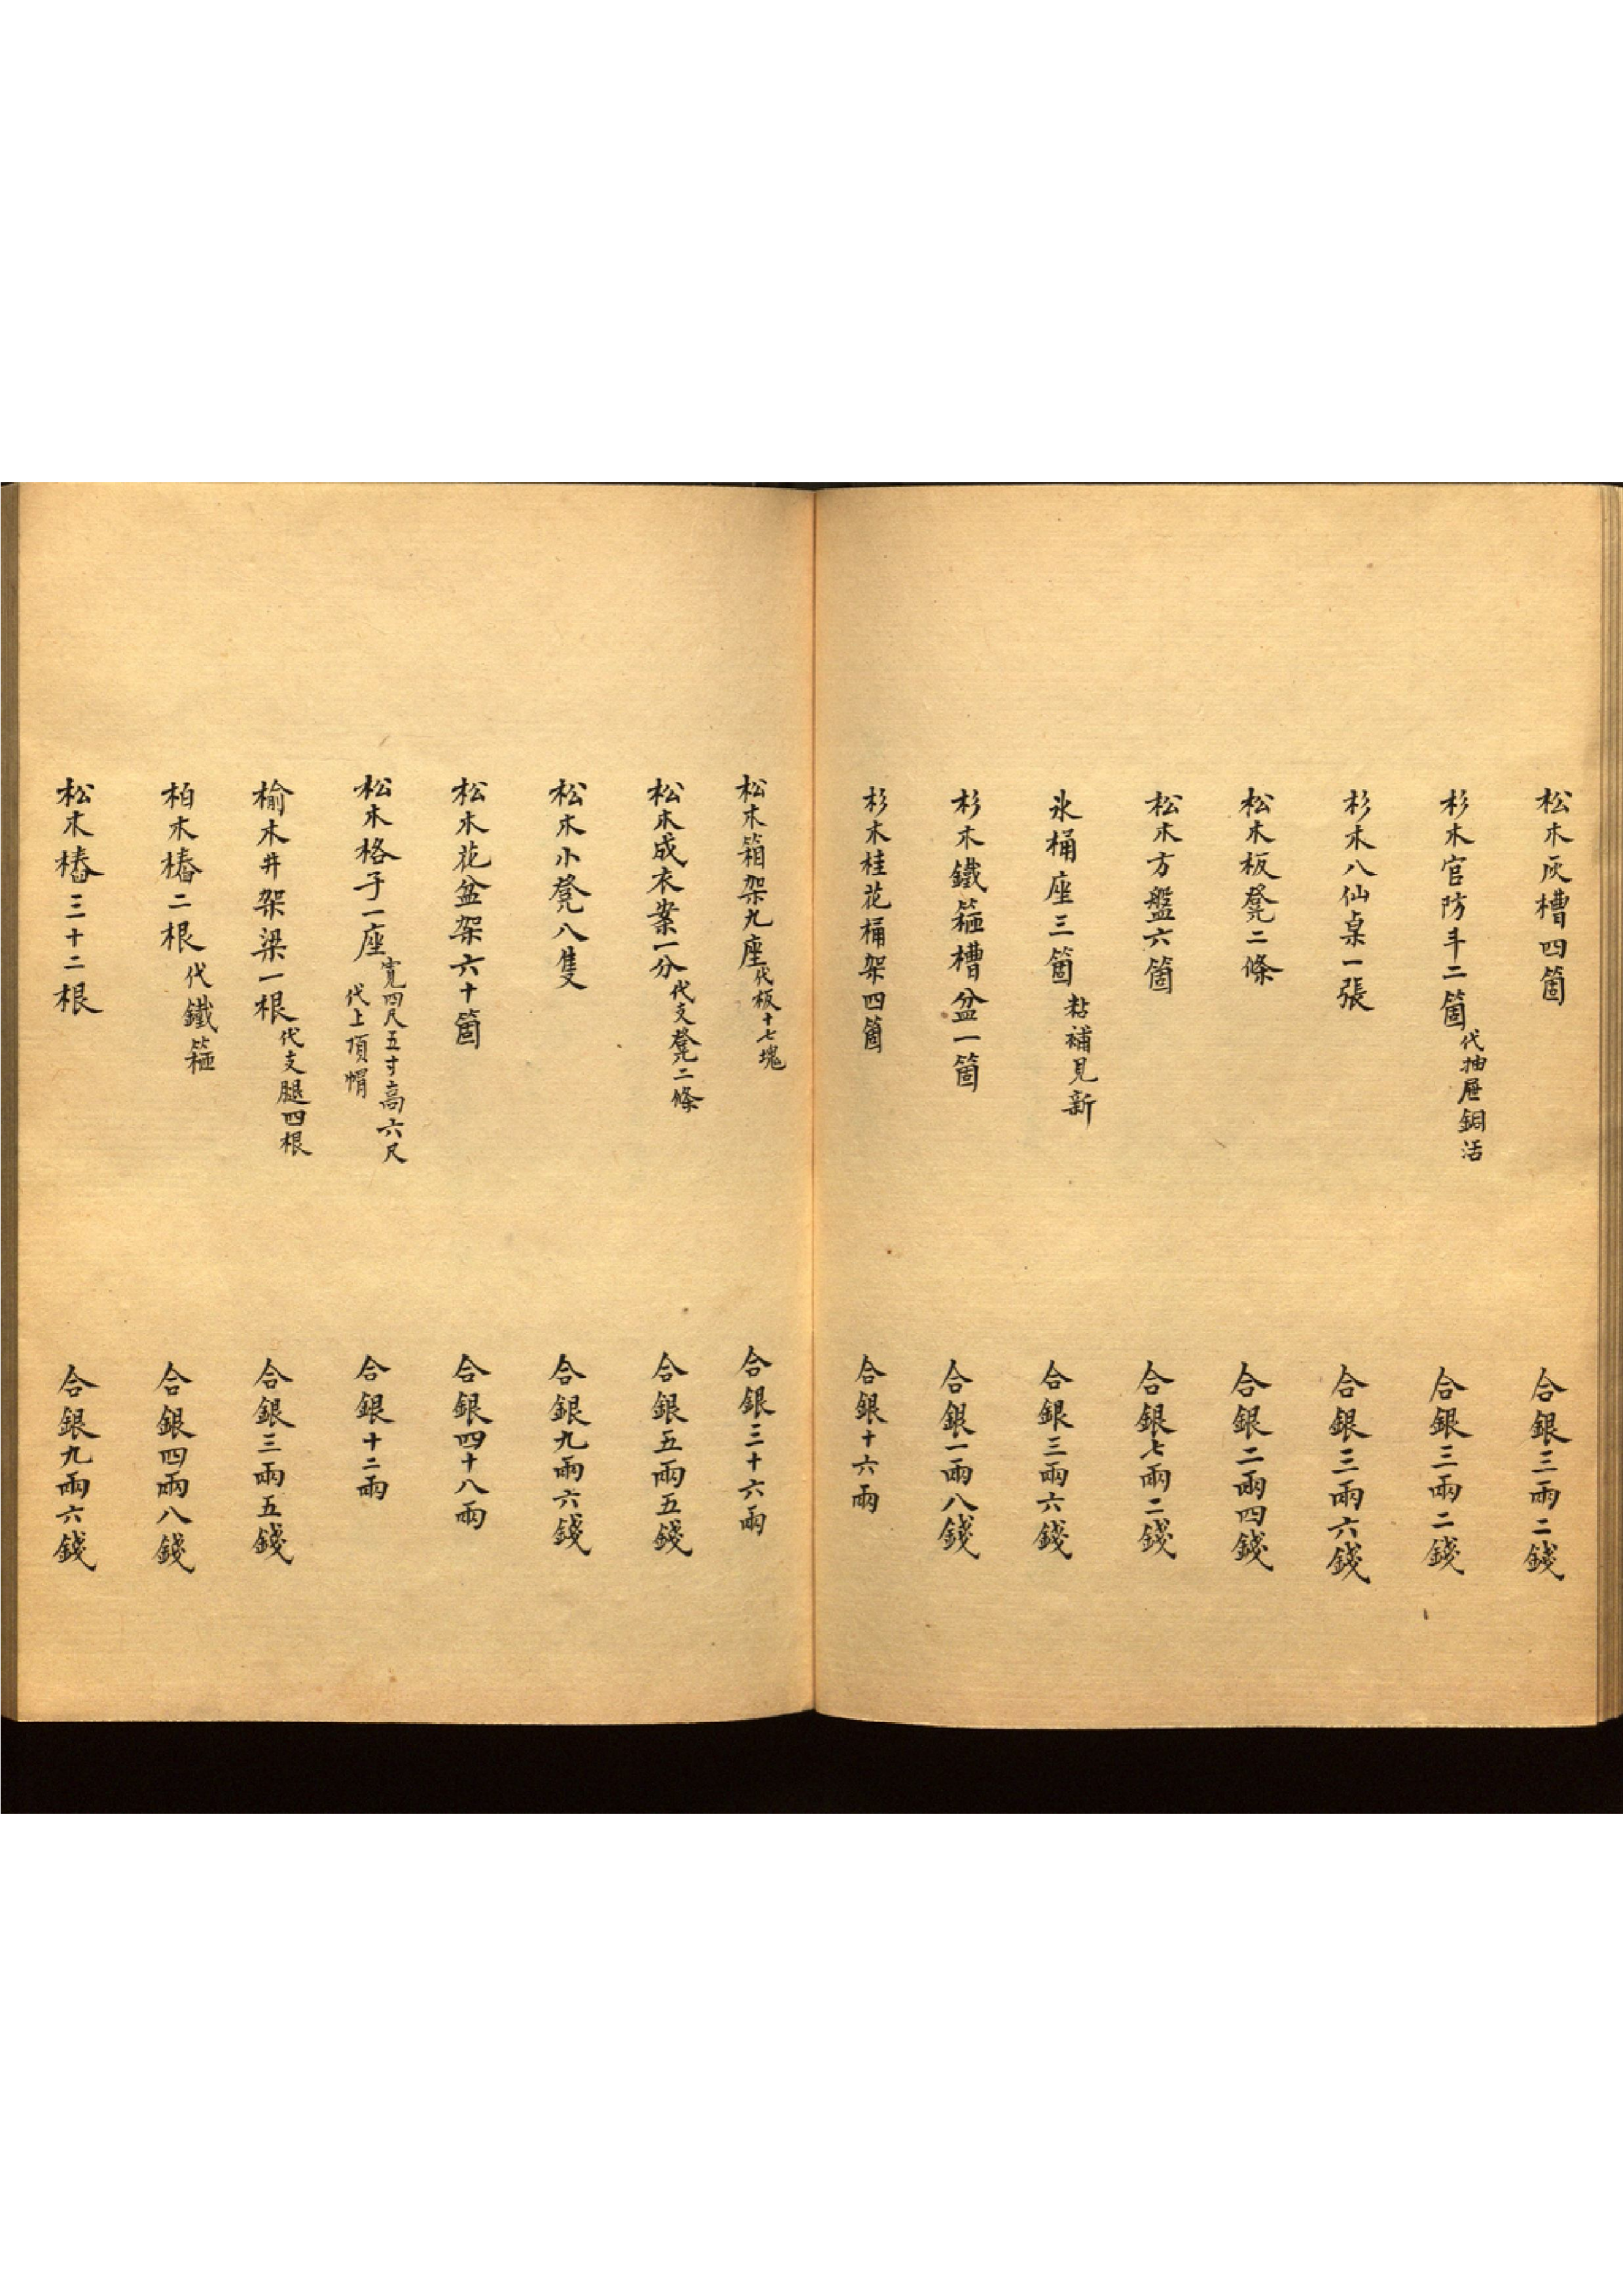 松木灰槽四箇 合銀三兩二錢
杉木官防斗二箇代抽屜銅活 合銀三兩二錢
杉木八仙桌一張 合銀三兩六錢
松木板凳二條 合銀二兩四錢
松木方盤六箇 合銀七兩二錢
氷桶座三箇粘補見新 合銀三兩六錢
杉木鐵箍槽盆一箇 合銀一兩八錢
杉木桂花桶架四箇 合銀十六兩
松木箱架九座代板十七塊 合銀三十六兩
松木成衣案一分代支凳二條 合銀五兩五錢
松木小凳八隻 合銀九兩六錢
松木花盆架六十箇 合銀四十八兩
松木格子一座寬四尺五寸高六尺代上頂帽 合銀十二兩
榆木井架梁一根代支腿四根 合銀三兩五錢
柏木樁二根代鐵箍 合銀四兩八錢
松木樁三十二根 合銀九兩六錢